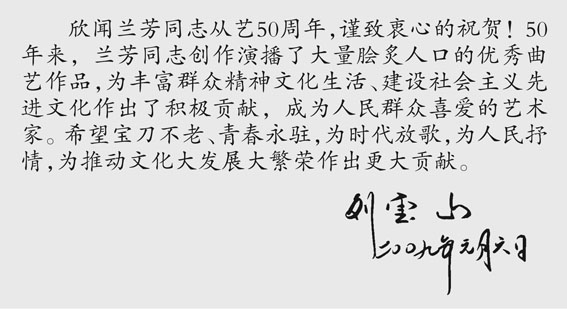 欣闻兰芳同志从艺50周年,谨致衷心的祝贺！50
年来，兰芳同志创作演播了大量脍炙人口的优秀曲
艺作品,为丰富群众精神文化生活、建设社会主义先
进文化作出了积极贡献，成为人民群众喜爱的艺术
家。希望宝刀不老、青春永驻,为时代放歌,为人民抒
情,为推动文化大发展大繁荣作出更大贡献。
刘云山
二〇〇九年元月六日